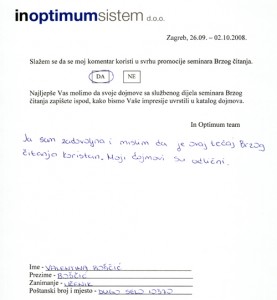 inoptimumsistem d.o.o.
Zagreb, 26.09. – 02.10.2008.
Slažem se da se moj komentar koristi u svrhu promocije seminara Brzog čitanja.
DA NE
Najljepše Vas molimo da svoje dojmove sa službenog dijela seminara Brzog
čitanja zapišete ispod, kako bismo Vaše impresije uvrstili u katalog dojmova.
In Optimum team
Ja sam zadovoljna i mislim da je ovaj tečaj Brzog
čitanja koristan. Moji dojmovi su odlični.
Ime - VALENTINA
Prezime -
Zanimanje - UČENIK
Poštanski broj i mjesto - DUGO SELO 10370